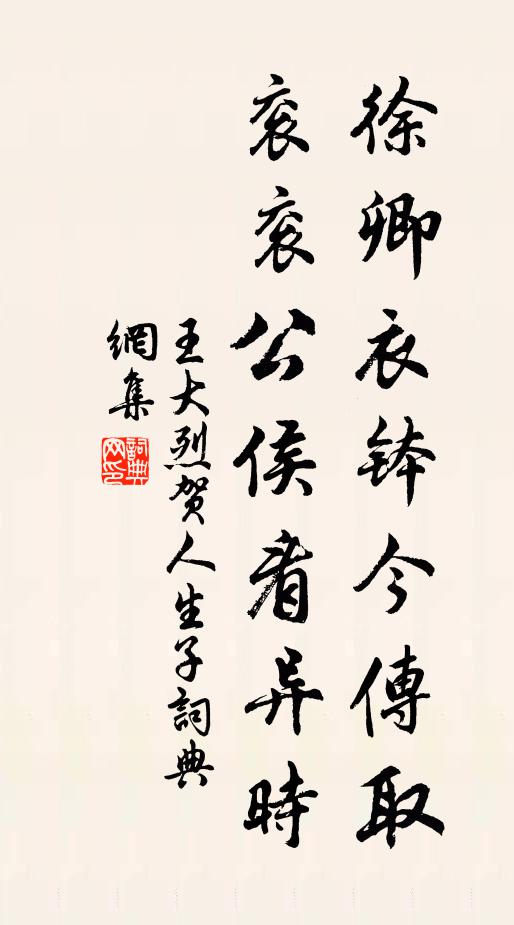 徐卿衣钵今傳取
衮衮公侯看异時
王大烈贺人生子詞典
網集
詞典网印